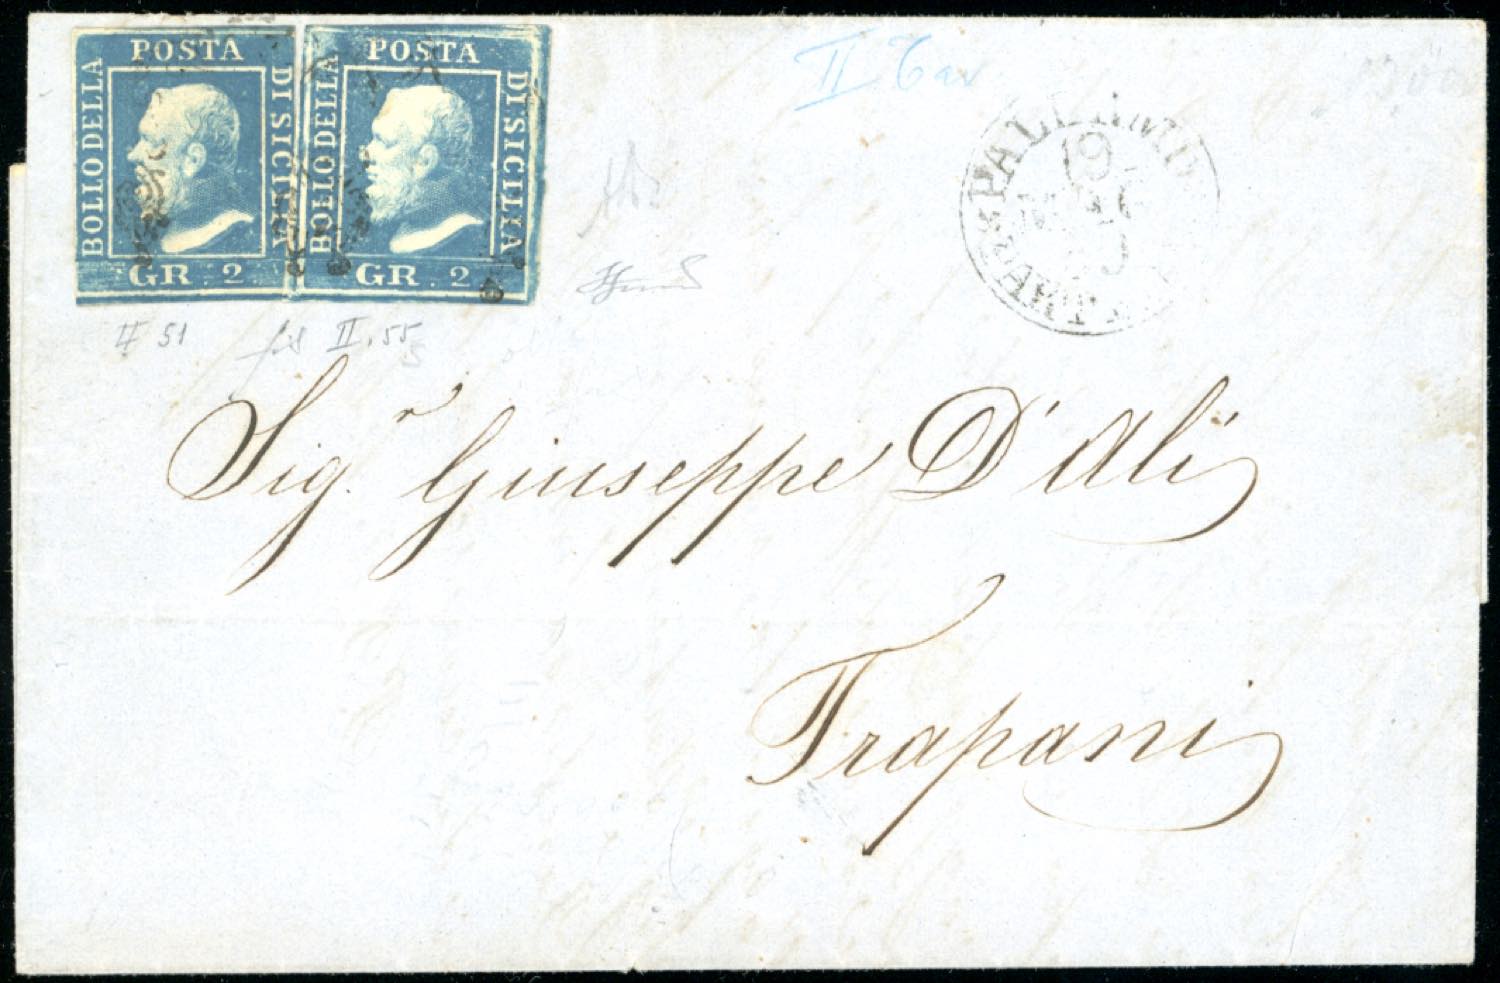 POSTA
BOLLO DELLA
DI SICILIA
GR. 2.
POSTA
BOLLO DELLA
DI SICILIA
GR. 2.
II Tav
PALERMO
19
II 51
II. 55
Sig.r Giuseppe D'Alì
Trapani